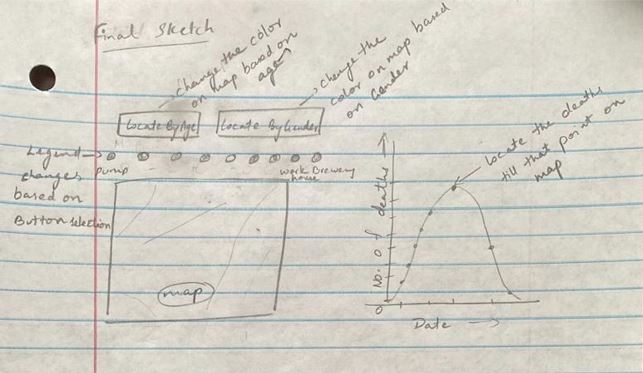 Final Sketch
change the color
on map based on
age
change the
color on map based
on Gender
Locate By Age
Locate By Gender
Legend
changes
based on
Button selection
pump
work
house
Brewery
map
No. of deaths
0
Date
Locate the deaths
till that point on
map